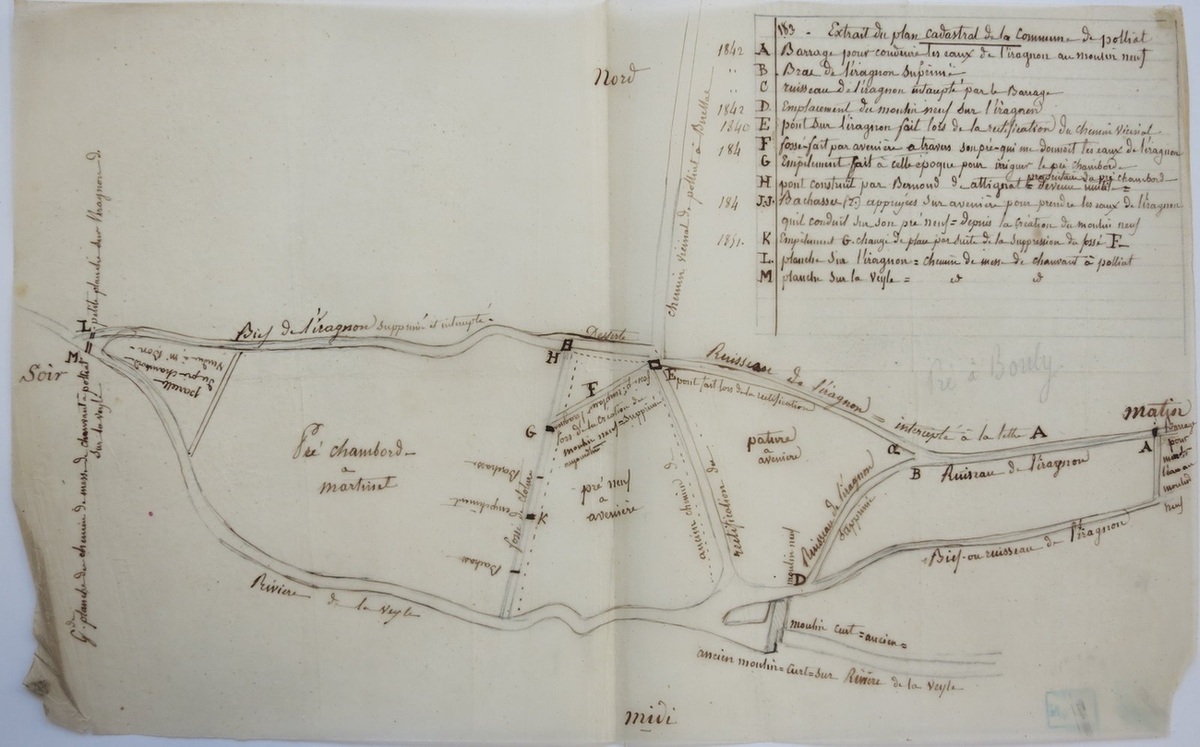 183 . Extrait du plan cadastral de la Commune de polliat
1842 A Barrage pour conduire les eaux de l'iragnon au moulin neuf
" B Bras de l'iragnon suprimé
" C ruisseau de l'iragnon intercepté par le Barrage
1842 D Emplacement du moulin neuf sur l'iragnon
1840 E pont sur l'iragnon fait lors de la rectification du chemin vicinal
184 F fossé fait par avenière a travers son pré qui me donnoit les eaux de l'iragnon
G Empèlement fait à cette époque pour irriguer le pré chambord
H pont construit par Bernond d'attignat = devenu inutile =
proprietaire du pré chambord
184 J.J. Bachasses (2.) appuyées sur avenière pour prendre les eaux de l'iragnon
qu'il conduit sur son pré neuf = depuis la création du moulin neuf
1851. K Empèlement G. changé de place par suite de la suppression du fossé F
L. planche sur l'iragnon = chemin de messe de chauvant à polliat
M planche sur la veyle = id id
Nord
chemin vicinal de polliat à Buellas
L petite planche sur l'iragnon
M
Soir
Gde planche du chemin de messe de chauvant à polliat
sur la veyle
Bief de l'iragnon supprimé et intercepté
Deserte
H
E
pont fait lors de la rectification
Ruisseau de l'iragnon = intercepté à la lettre A
Pré à Bouly
matin
A
Barrage pour
moulin
neuf
parcelle
du pré chambord
F
G
lors de la création du
moulin neuf = supprimé
Pré chambord
a
martinet
Bachasse
l'empèlement
K
Bachasse
fossé de cloture
pré neuf
a
avenière
ancien chemin
rectification du
pature
a
avenière
B
Ruisseau de l'iragnon
Ruisseau de l'iragnon
supprimé
moulin neuf
D
Bief ou ruisseau de l'iragnon
Rivière de la veyle
moulin curt = ancien =
ancien moulin = curt = sur Rivière de la veyle
midi